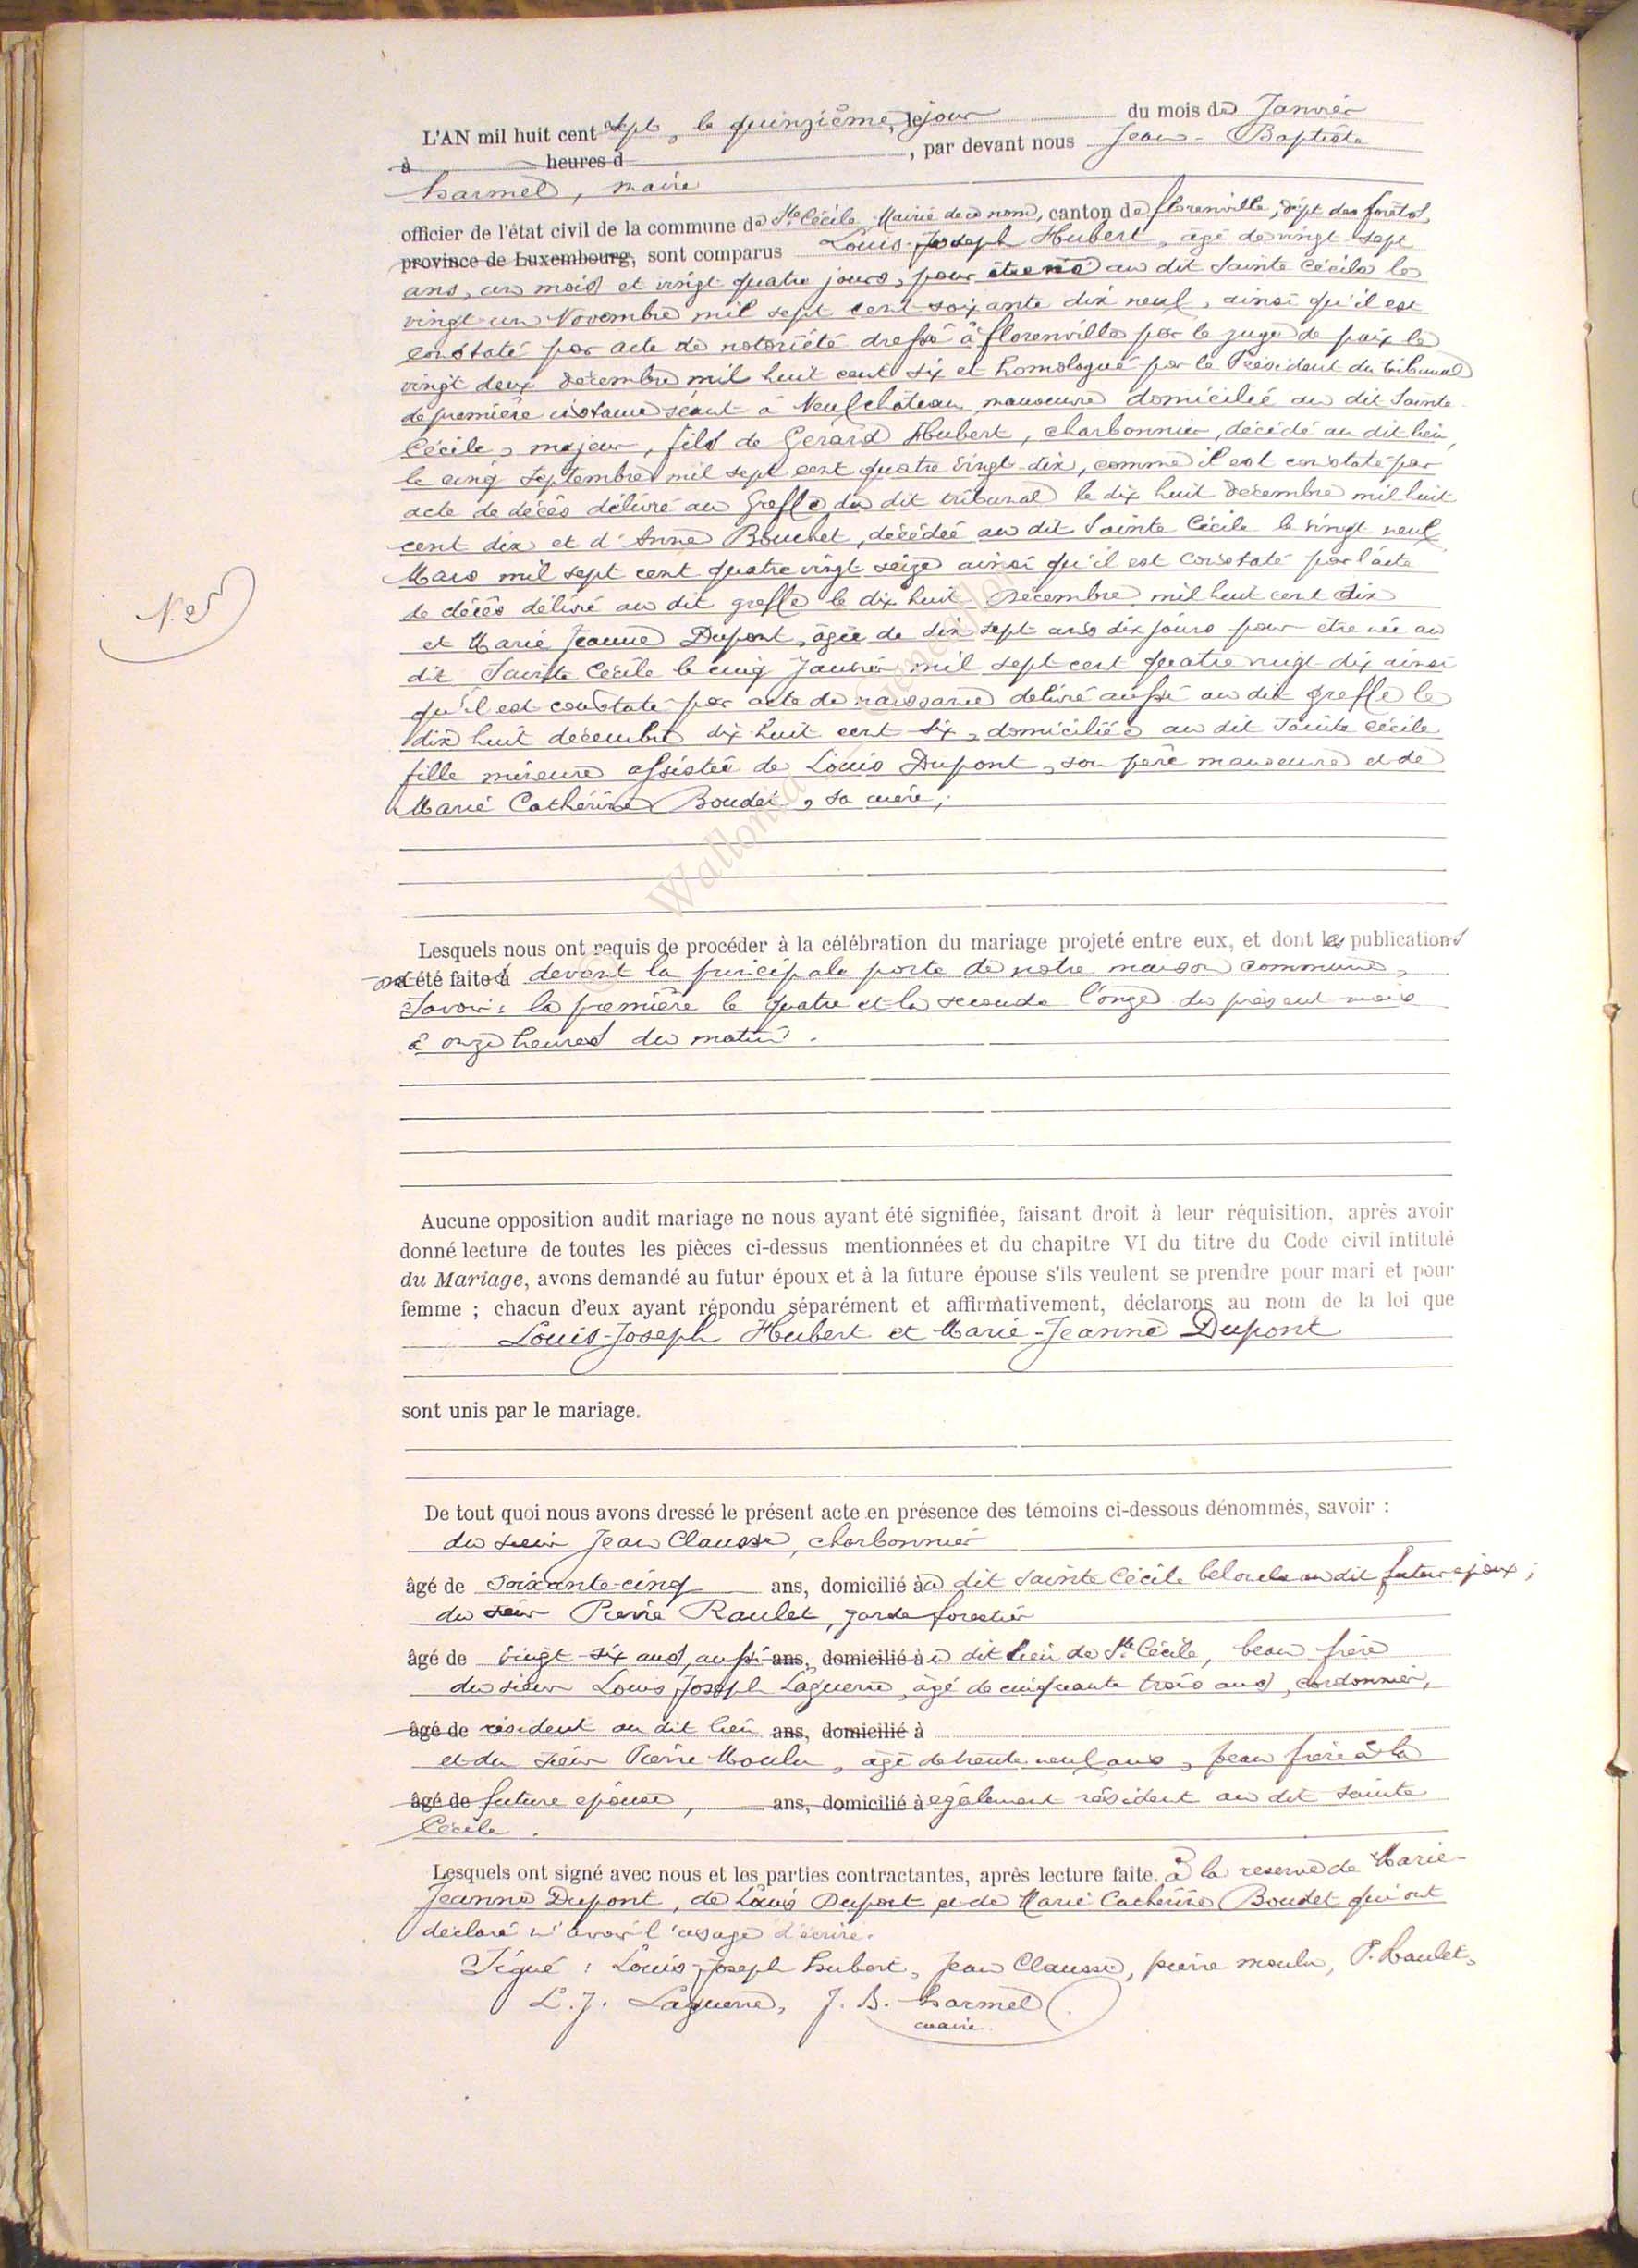 L'AN mil huit cent sept, le quinzième, jour du mois de Janvier
à heures d , par devant nous Jean-Baptiste
harmel, maire
officier de l'état civil de la commune de Ste Cécile Mairie de ce nom, canton de florenville, dépt des forêts,
province de Luxembourg, sont comparus Louis-Joseph Hubert, âgé de vingt-sept
ans, un mois et vingt quatre jours, pour être né au dit Sainte Cécile le
vingt-un Novembre mil sept cent soixante dix neuf, ainsi qu'il est
constaté par acte de notoriété dressé à florenville par le juge de paix le
vingt deux décembre mil huit cent six et homologué par le Président du tribunal
de première instance séant à Neufchâteau, manoeuvre domicilié au dit Sainte-
Cécile, majeur, fils de Gérard Hubert, charbonnier, décédé au dit lieu,
le cinq Septembre mil sept cent quatre vingt-dix, comme il est constaté par
acte de décès délivré au Greffe du dit tribunal le dix huit décembre mil huit
cent dix et d'Anne Bouchet, décédée au dit Sainte Cécile le vingt neuf
Mars mil sept cent quatre vingt seize ainsi qu'il est constaté par l'acte
de décès délivré au dit greffe le dix huit Décembre mil huit cent dix
et Marie Jeanne Dupont, âgée de dix sept ans dix jours pour être née au
dit Sainte Cécile le cinq Janvier mil sept cent quatre vingt-dix ainsi
qu'il est constaté par acte de naissance délivré aussi au dit greffe le
dix huit décembre dix huit cent six, domiciliée au dit Sainte Cécile
fille mineure assistée de Louis Dupont, son père manoeuvre et de
Marie Cathérine Boudet, sa mère;
N. 2
Lesquels nous ont requis de procéder à la célébration du mariage projeté entre eux, et dont les publications
ont été faites devant la principale porte de notre maison commune,
Savoir: la première le quatre et la seconde l'onze du présent mois
à onze heures du matin.
Aucune opposition audit mariage ne nous ayant été signifiée, faisant droit à leur réquisition, après avoir
donné lecture de toutes les pièces ci-dessus mentionnées et du chapitre VI du titre du Code civil intitulé
du Mariage, avons demandé au futur époux et à la future épouse s'ils veulent se prendre pour mari et pour
femme ; chacun d'eux ayant répondu séparément et affirmativement, déclarons au nom de la loi que
Louis-Joseph Hubert et Marie-Jeanne Dupont
sont unis par le mariage.
De tout quoi nous avons dressé le présent acte en présence des témoins ci-dessous dénommés, savoir :
du sieur Jean Clausse, charbonnier
âgé de soixante-cinq ans, domicilié au dit Sainte Cécile bel oncle au dit futur époux;
du sieur Pierre Raulet, garde forestier
âgé de vingt-six ans, aussi ans, domicilié à u dit lieu de Ste Cécile, beau frère
du sieur Louis Joseph Laguerre, âgé de cinquante trois ans, cordonnier,
âgé de résident au dit lieu ans, domicilié à
et du sieur Pierre Moulu, âgé de trente neuf ans, beau frère à la
âgé de future épouse, ans, domicilié à également résident au dit Sainte
Cécile.
Lesquels ont signé avec nous et les parties contractantes, après lecture faite, à la reserve de Marie-
Jeanne Dupont, de Louis Dupont et de Marie Catherine Boudet qui ont
déclaré n'avoir l'usage d'écrire.
Signé : Louis-Joseph hubert, Jean Clausse, pierre moulu, P. Raulet,
L. J. Laguerre, J. B. harmel
maire.